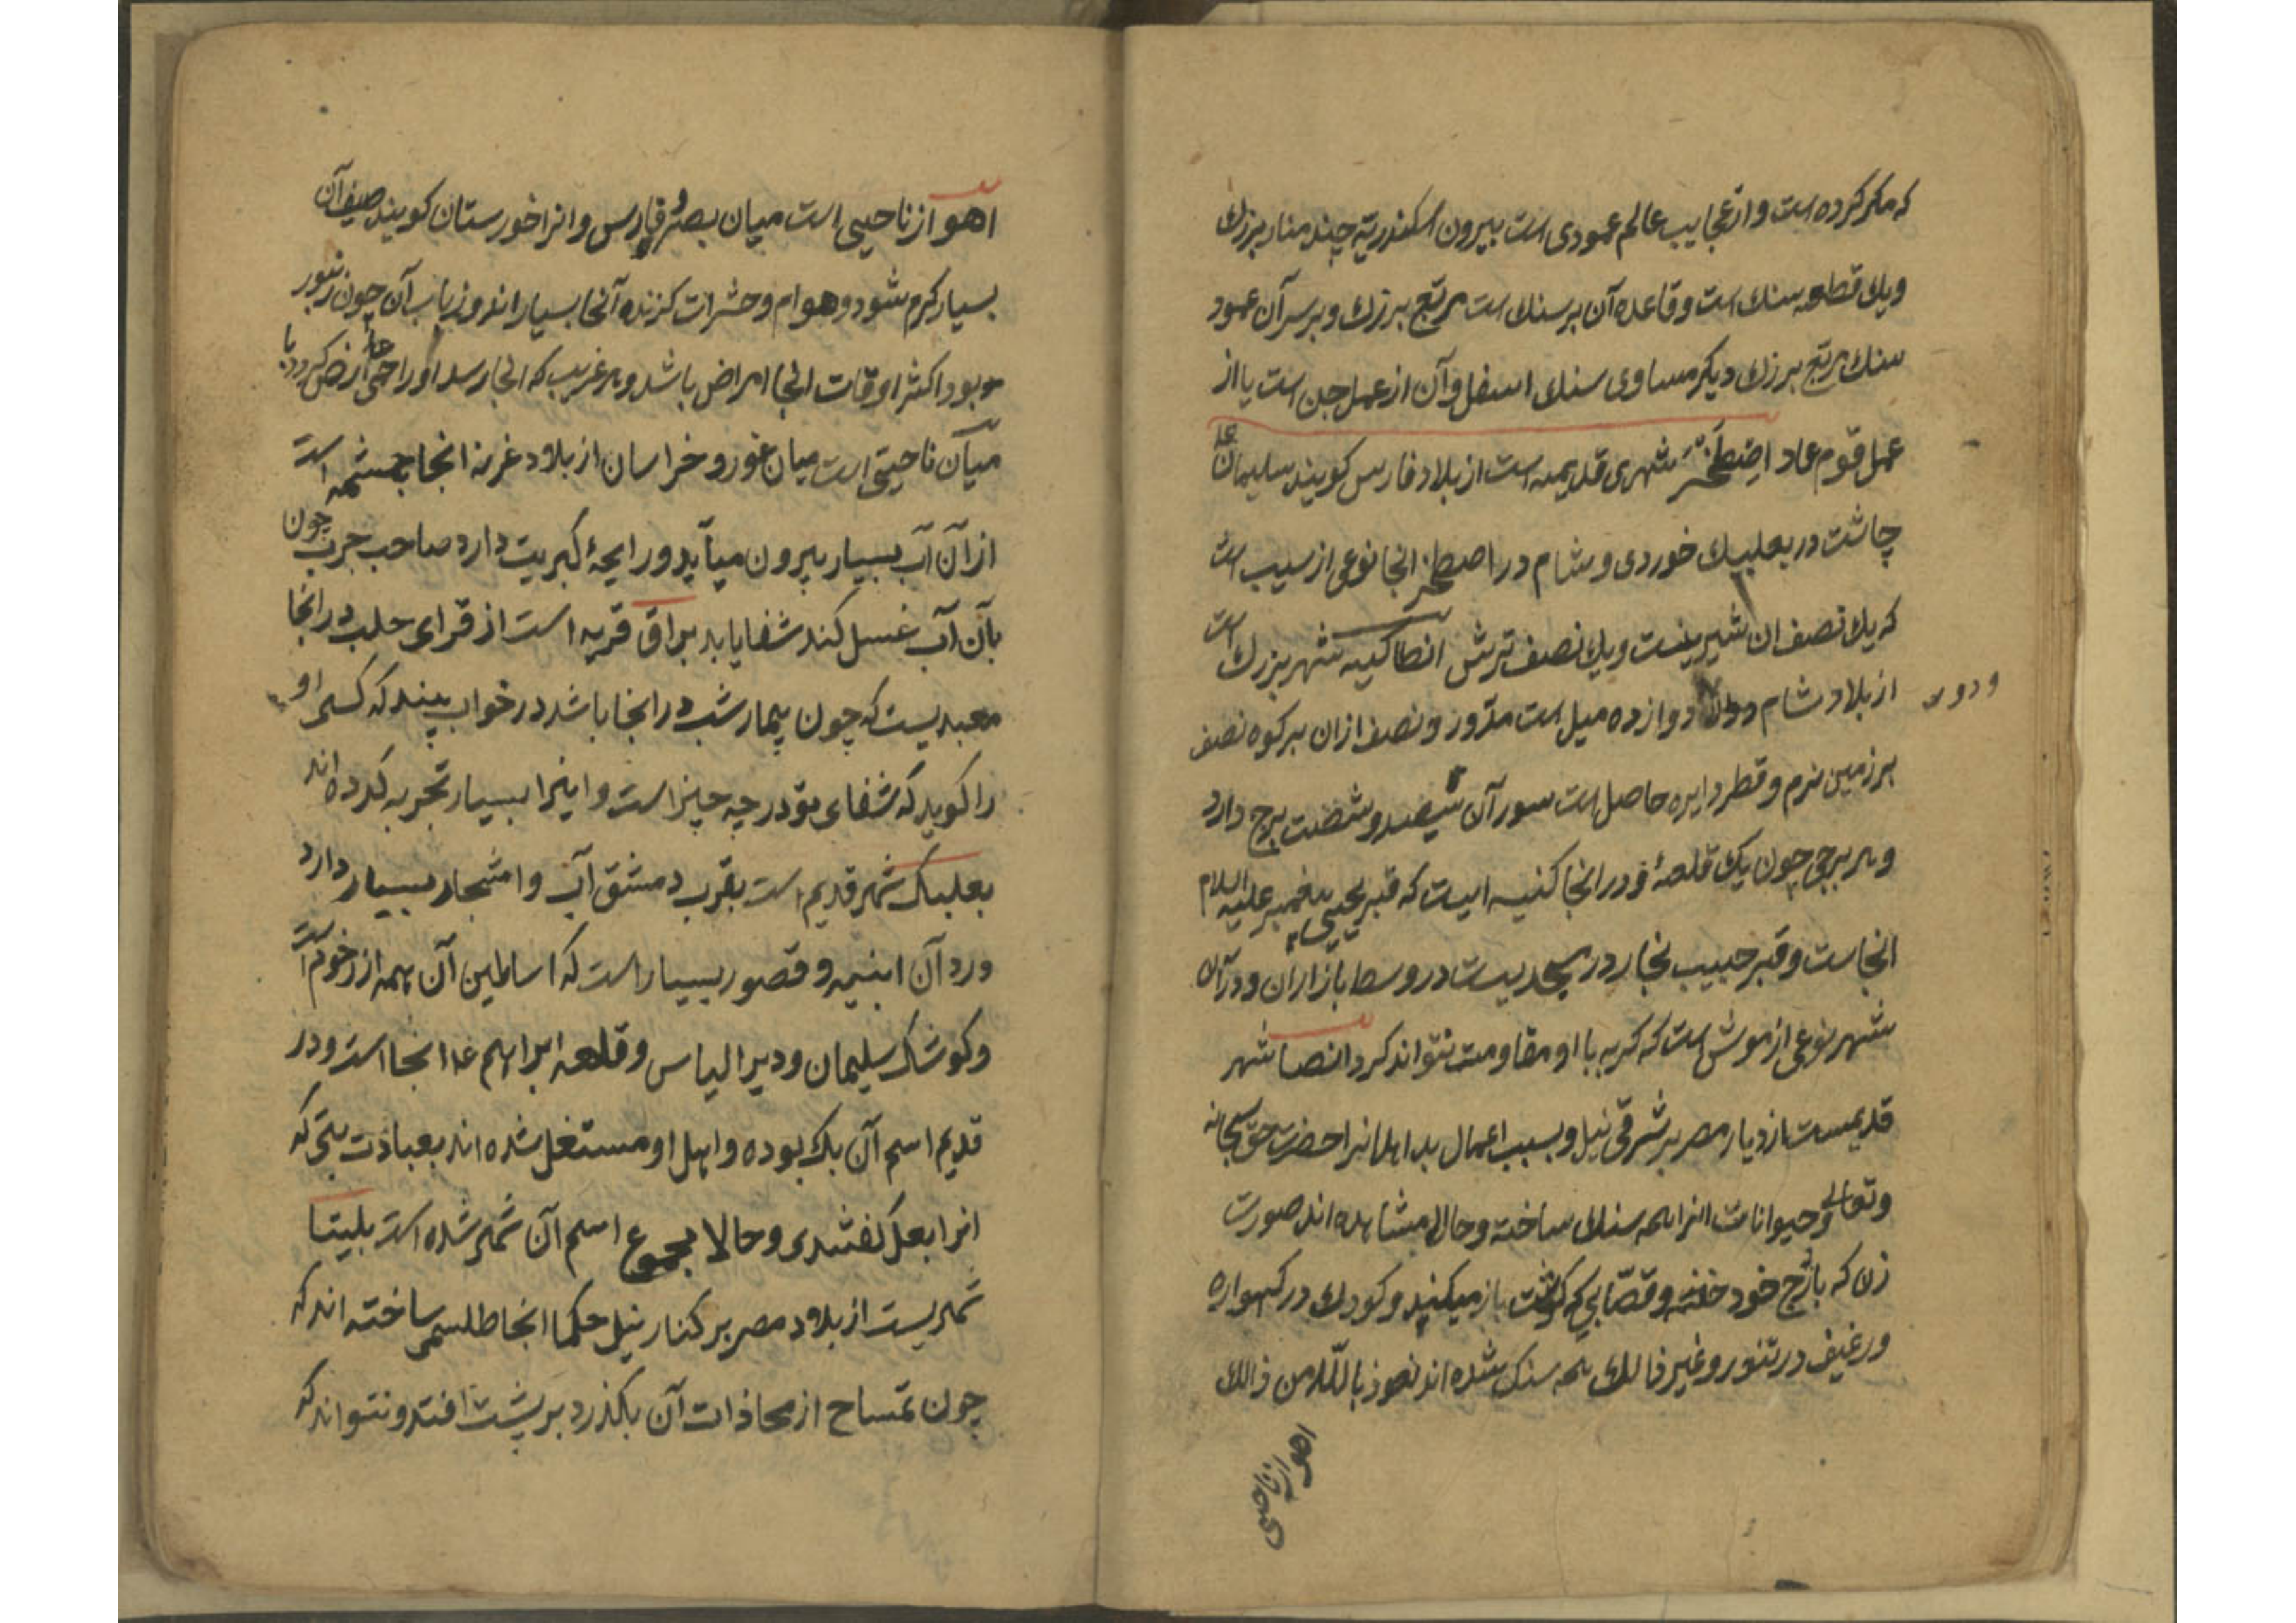 که مکر کرده است و از عجایب عالم عمودی است بیرون اسکندریه چند منار بزرك
ویك قطعه سنك است وقاعده آن بر سنك است مربع بزرك و بر سر آن عمود
سنك مربع بزرك دیکر مساوی سنك اسفل وآن از عمل جن است یا از
عمل قوم عاد اصطخر شهری قدیمه است از بلاد فارس کویند سلیمان ع
چاشت در بعلبك خوردی و شام در اصطخر انجا نوعی از سیب است
که یك نصف ان شیرینست ویك نصف ترش انطاکیه شهر بزرك است
از بلاد شام دوازده میل است مدور ونصف ازان بر کوه نصف
بر زمین نرم وقطر دایره حاصل است سور آن سیصد و شصت برج دارد
وهر برجی چون یك قلعهٔ ودر انجا کنیسه ایست که قبر یحیی پیغمبر علیه السلام
انجاست وقبر حبیب نجار در مسجدیست در وسط بازار ان ودر آن
شهر نوعی از موش است که کربه با او مقاومت نتواند کرد انصنا شهر
قدیمست از دیار مصر بر شرقی نیل و بسبب اعمال بد اهل انرا حضرت حق سبحانه
وتعالی وحیوانات انرا همه سنك ساخته و حالا مشاهده اند صورت
زن که با زوج خود خفته وقصابی که کوشت باز میکنید و کودك در کهواره
ورغیف در تنور وغیر ذالك همه سنك شده اند نعوذ بالله من ذالك
اهواز ناحیتی است میان بصره و فارس وانرا خوزستان کویند صیف آن
بسیار کرم شود وهوام وحشرات کزنده آنجا بسیار اند وزباب آن چون زنبور
بود اکثر اوقات انجا امراض باشد وهر غریب که انجا رسد اورا حمی عارض کردد با
میآن ناحیتی است میان غور و خراسان از بلاد غزنه انجا چشمه است
ازان آب بسیار بیرون میآید ورایحهٔ کبریت دارد صاحب جرب چون
بآن آب غسل کند شفا یابد براق قریه است از قرای حلب در انجا
معبدیست که چون بیمار شب در انجا باشد در خواب بیند که کسی او
را کوید که شفای تو در چه چیز است و اینرا بسیار تجربه کرده اند
بعلبك شهر قدیم است بقرب دمشق آب و اشجار بسیار دارد
ودر آن ابنیه وقصور بسیار است که اساطین آن همه از رخام است
وکوشك سلیمان ودیر الیاس وقلعه ابراهیم ع انجا است ودر
قدیم اسم آن بك بوده و اهل او مشتغل شده اند بعبادت بتی که
انرا بعل کفتندی وحالا مجموع اسم آن شهر شده است بلیتا
شهریست از بلاد مصر بر کنار نیل حکما انجا طلسمی ساخته اند که
چون تمساح از محاذات آن بکذرد بر پشت افتد و نتواند که